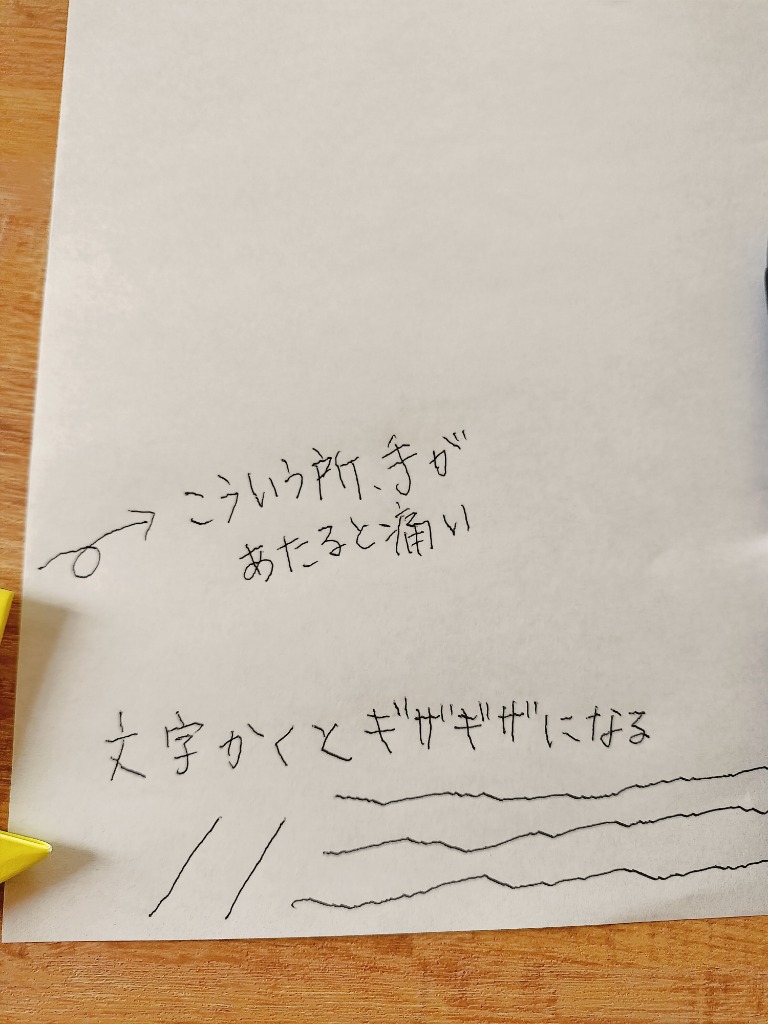 こういう所、手が
あたると痛い
文字かくとギザギザになる